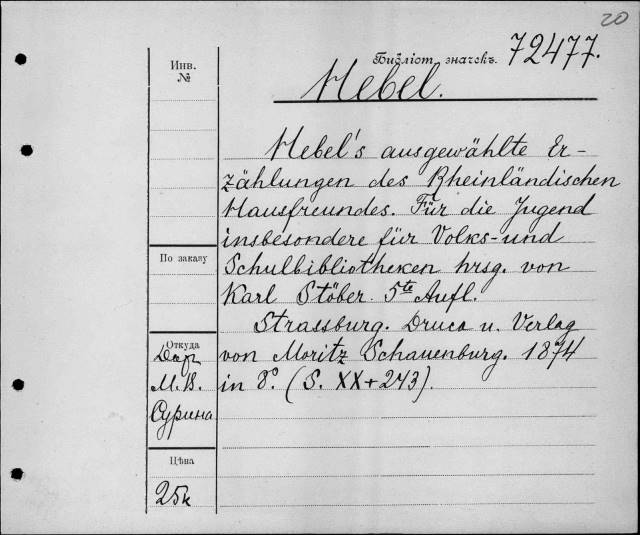 20
Инв.
№
Библіот. значекъ. 72477.
Hebel.
Hebel's ausgewählte Er-
zählungen des Rheinländischen
Hausfreundes. Für die Jugend
insbesondere für Volks- und
По заказу
Schulbibliotheken hrsg. von
Karl Stöber. 5te Aufl.
Strassburg. Druck u. Verlag
Откуда
Дар
von Moritz Schauenburg. 1874
М.В.
in 8º. (S. XX+243).
Сурина
Цѣна
25к